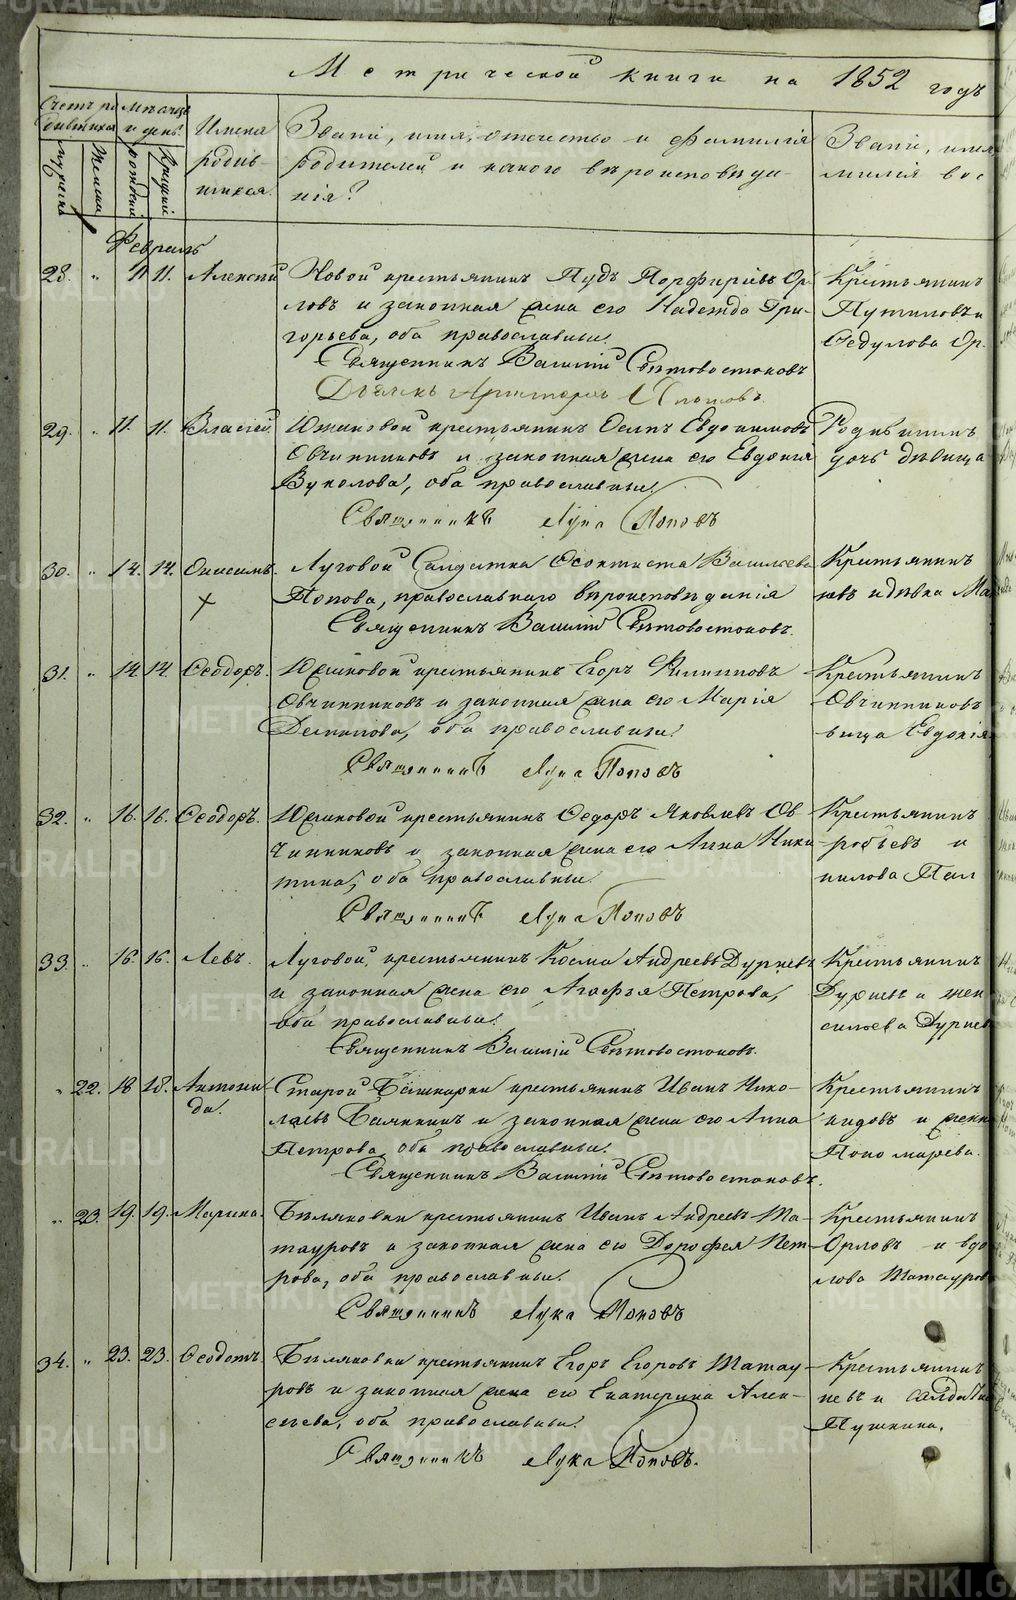 METRIKI.GASO-URAL.RU
Метрической книги на 1852 годъ
Счетъ ро
дившихся
Мѣсяцъ
и день
мужеска
женска
рожденія
крещенія
Имена
родив-
шихся.
Званіе, имя, отчество и фамилія
родителей и какого вѣроисповѣда-
нія?
Званіе, имя
милія вос
Февраль
28. " 11 11. Алексѣй
Новой крестьянинъ Пудъ Порфирьевъ Ор-
ловъ и законная жена его Надежда Гри-
горьева, оба православные.
Священникъ Василій Свѣтовостоковъ
Дьячекъ
Крестьянинъ
Ѳедулова Ор.
29. " 11. 11. Власій.
Южаковой крестьянинъ Осипъ Евдокимовъ
Овчинниковъ и законная жена его Евдокія
Вуколова, оба православные.
Священникъ Лука Поповъ
Родившихъ
дочь дѣвица
30. " 14. 14. Онисимъ.
Луговой Салдатка Ѳеоктиста Васильева
Попова, православнаго вѣроисповѣданія
Священникъ Василій Свѣтовостоковъ.
Крестьянинъ
евъ и дѣвка Ма
31. " 14 14. Ѳеодоръ.
Южаковой крестьянинъ Егоръ Филипповъ
Овчинниковъ и законная жена его Марія
оба православные.
Священникъ Лука Поповъ
Крестьянинъ
Овчинниковъ
вица Евдокія
32. " 16. 16. Ѳеодоръ.
Южаковой крестьянинъ Ѳедоръ Яковлевъ Ов-
чинниковъ и законная жена его Анна Ники-
тина, оба православные.
Священникъ Лука Поповъ
Крестьянинъ
робьевъ и
нилова Пел
33. " 16. 16. Левъ.
Луговой, крестьянинъ Косма Андреевъ Дурневъ
и законная жена его Агафья Петрова,
оба православные.
Священникъ Василій Свѣтовостоковъ.
Крестьянинъ
Дурневъ и жен
сильева Дурнев
" 22. 18 18. Антони-
да.
Старой Башкарки крестьянинъ Иванъ Нико-
лаевъ и законная жена его Анна
Петрова, оба православные.
Священникъ Василій Свѣтовостоковъ.
Крестьянинъ
кидовъ и жена
Пономарева.
" 23. 19. 19. Марина.
Бѣляковки крестьянинъ Иванъ Андреевъ Та-
тауровъ и законная жена его Дорофея Пет-
рова, оба православные.
Священникъ Лука Поповъ
Крестьянинъ
Орловъ и вдо
лова Татауров
34. " 23. 23. Ѳеодотъ.
Бѣляковки крестьянинъ Егоръ Егоровъ Татау-
ровъ и законная жена его Екатерина Алек-
сѣева, оба православные.
Священникъ Лука Поповъ.
Крестьянинъ
невъ и салдатка
Пушкина.